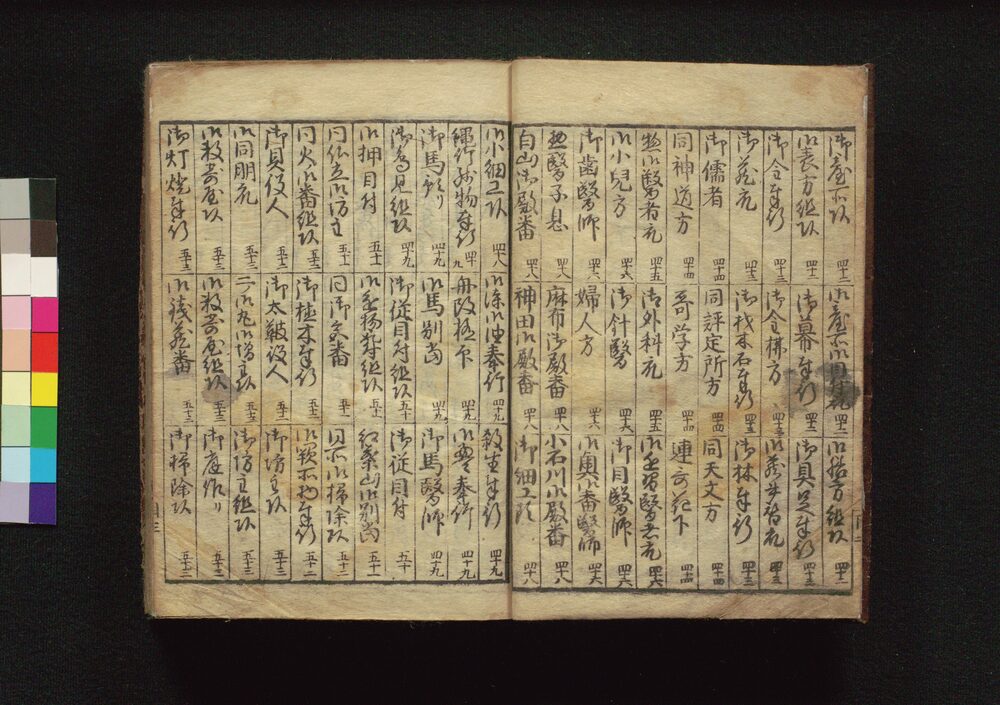 御臺所頭 四十二
御臺所 四十二
組頭 四十二
御表方組頭 四十二
御幕奉行 四十三
御具足奉行 四十三
御金奉行 四十三
御金拂方 四十三
御蔵 四十三
御蔵衆 四十三
御材木石奉行 四十三
御林奉行 四十三
御儒者 四十四
同評定所方 四十四
同天文方 四十四
同神道方 四十四
哥学方 四十四
連哥花下 四十四
惣御醫者衆 四十五
御外科衆 四十五
醫者衆 四十六
御小児方 四十六
御針醫 四十六
御目醫師 四十六
御歯醫師 四十六
婦人方 四十六
御奥御番醫師 四十六
惣醫子息 四十八
麻布御殿番 四十八
小石川御殿番 四十八
白山御殿番 四十八
神田御殿番 四十八
御細工頭 四十八
御小細工頭 四十八
御漆御油奉行 四十九
殺生奉行 四十九
縄竹 物奉行 四十九
舟改 四十九
御畳奉行 四十九
御馬預り 四十九
御馬別當 四十九
御馬醫師 四十九
御鳥見組頭 四十九
御徒目付組頭 五十
御徒目付 五十
御押目付 五十
御進物番組頭 五十一
紅葉山御別當 五十一
同仏立御坊主 五十一
同御宮番 五十一
同所御掃除頭 五十二
同火ノ番組頭 五十二
御植木奉行 五十二
物奉行 五十二
御貝役人 五十二
御太鞁役人 五十二
御坊主頭 五十二
御同朋衆 五十二
二ノ丸御坊主頭 五十二
御坊主組頭 五十三
御数寄屋頭 五十三
御数寄屋組頭 五十三
御庭作り 五十三
御灯焼奉行 五十三
御銭蔵番 五十三
御掃除頭 五十三